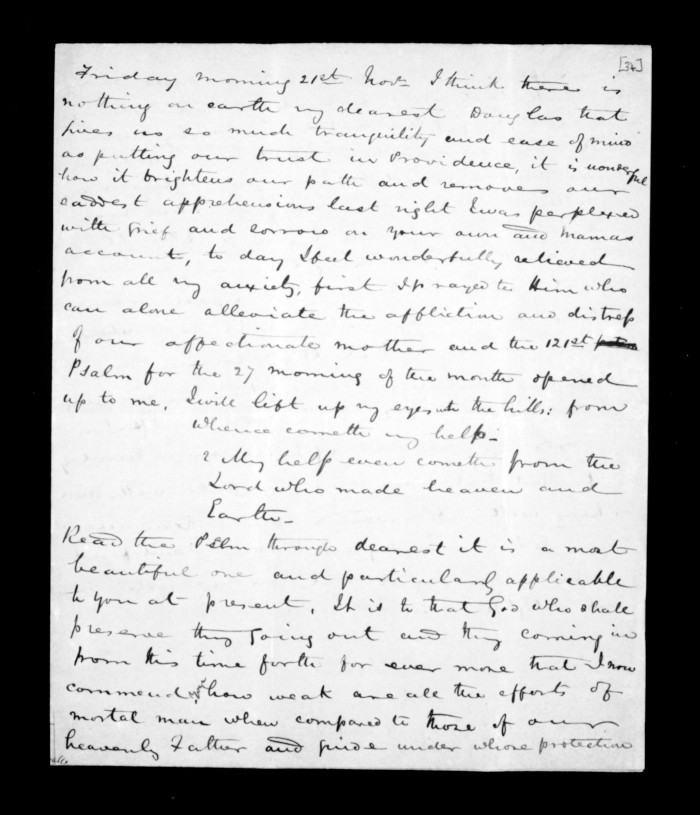 [34]
Friday morning 21st Novr I think there is
nothing on earth my dearest Douglas that
gives us so much tranquility and ease of mind
as putting our trust in Providence, it is wonderful
how it brightens our path and removes our
saddest apprehensions last night I was perplexed
with grief and sorrow on your own and Mamas
account, to day I feel wonderfully relieved
from all my anxiety, first I prayed to Him who
can alone alleviate the affliction and distress
of our affectionate mother and the 121st
Psalm for the 27 morning of the month opened
up to me. I will lift up my eyes unto the hills: from
whence cometh my help-
2 My help even cometh from the
Lord who made heaven and
Earth-
Read the Pslm through dearest it is a most
beautiful one and particularly applicable
to you at present. It is to that God who shall
preserve thy going out and thy coming in
from this time forth for ever more that I now
commend how weak are all the efforts of
mortal man when compared to those of our
heavenly Father and guide under whose protection